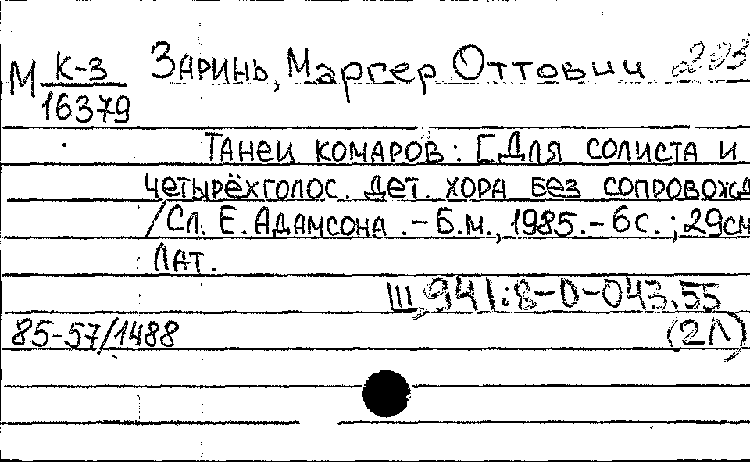 М К-3/16379 Заринь, Маргер Оттович 203
Танец комаров: [Для солиста и
четырёхголос. дет. хора без сопровожд
/Сл. Е. Адамсона. - Б.м., 1985. - 6с.; 29см
Лат.
III, 941:8-0-043.55
85-57/1488 (2Л)